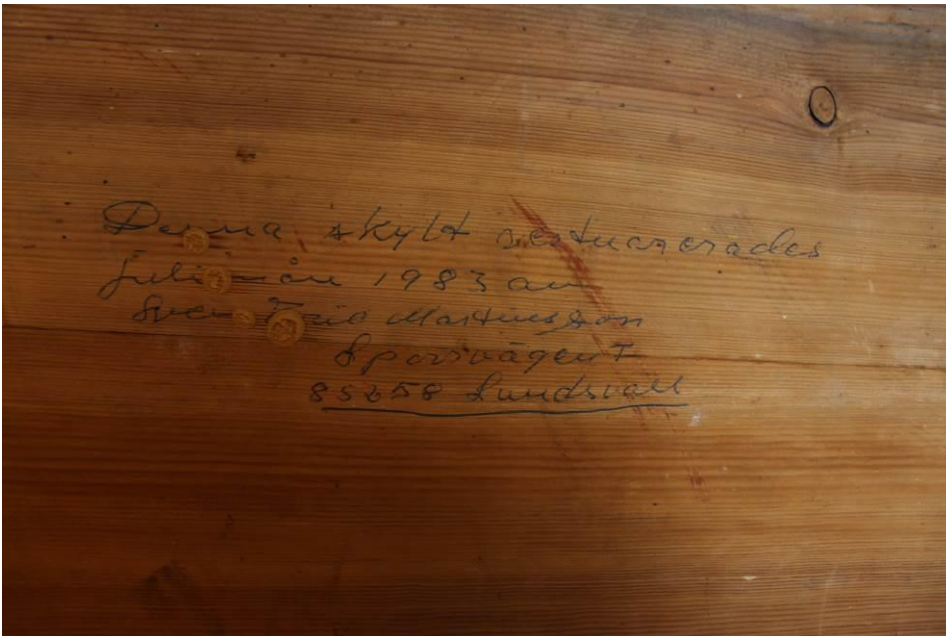 Denna skylt restuarerades
juli-mån 1983 av
Sven Martinsson
Sparrvägen 7
85258 Sundsvall